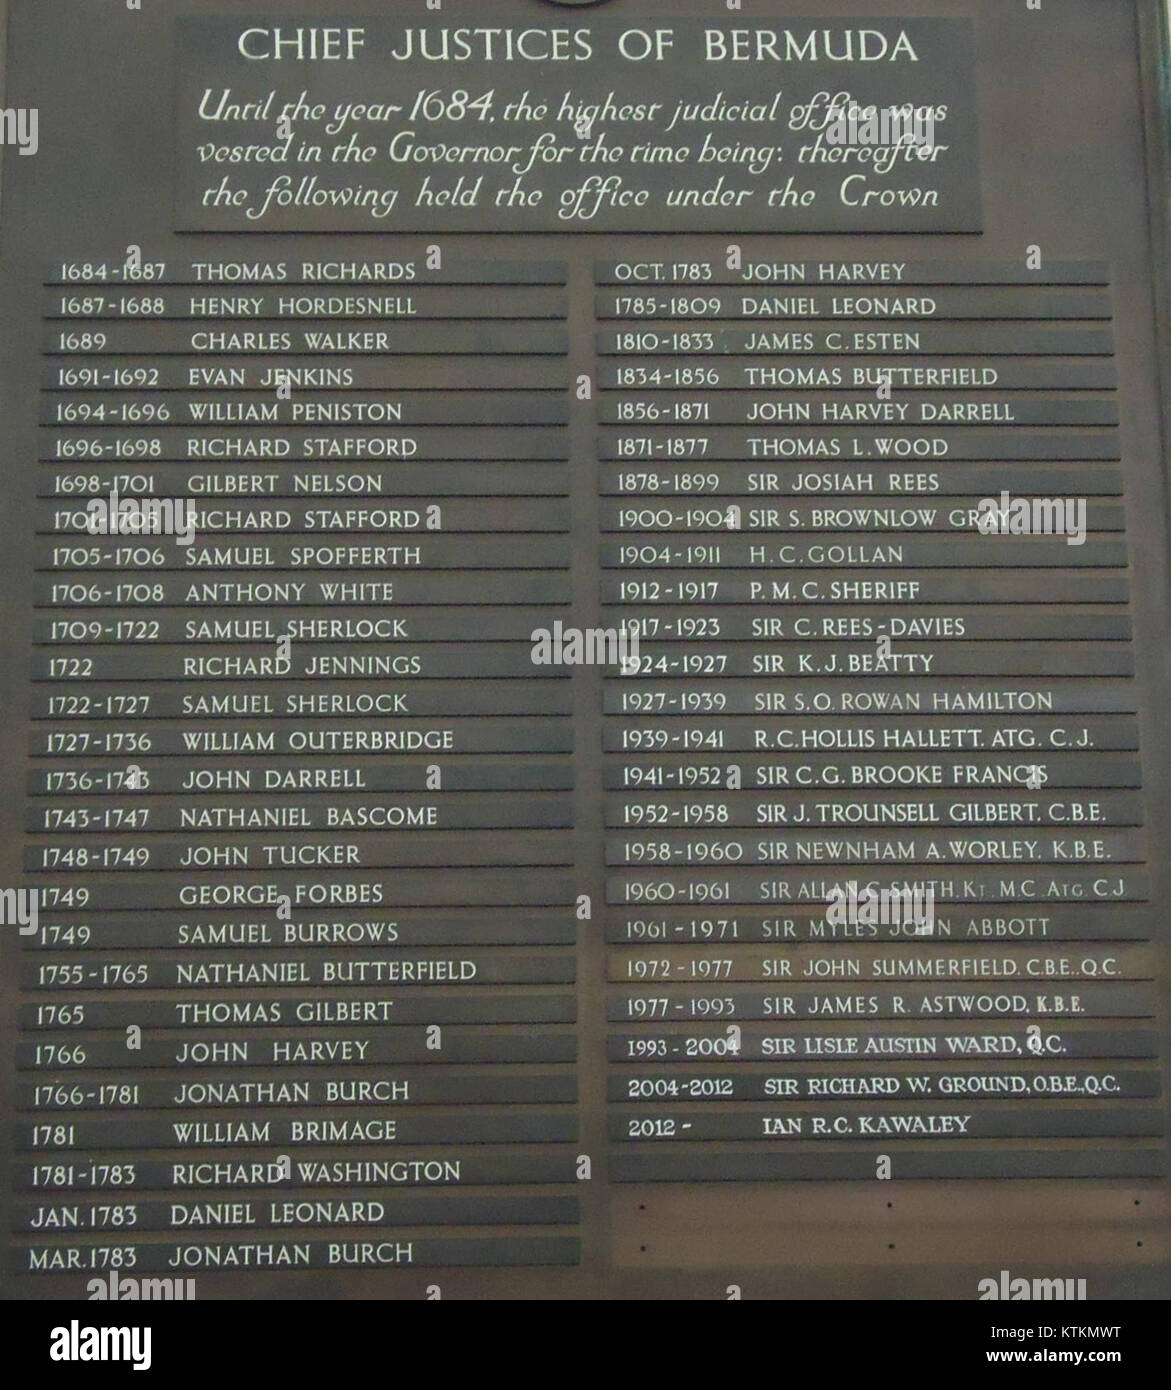 CHIEF JUSTICES OF BERMUDA
Until the year 1684, the highest judicial office was
vested in the Governor for the time being: thereafter
the following held the office under the Crown
1684-1687 THOMAS RICHARDS
1687-1688 HENRY HORDESNELL
1689 CHARLES WALKER
1691-1692 EVAN JENKINS
1694-1696 WILLIAM PENISTON
1696-1698 RICHARD STAFFORD
1698-1701 GILBERT NELSON
1701-1705 RICHARD STAFFORD
1705-1706 SAMUEL SPOFFERTH
1706-1708 ANTHONY WHITE
1709-1722 SAMUEL SHERLOCK
1722 RICHARD JENNINGS
1722-1727 SAMUEL SHERLOCK
1727-1736 WILLIAM OUTERBRIDGE
1736-1743 JOHN DARRELL
1743-1747 NATHANIEL BASCOME
1748-1749 JOHN TUCKER
1749 GEORGE FORBES
1749 SAMUEL BURROWS
1755-1765 NATHANIEL BUTTERFIELD
1765 THOMAS GILBERT
1766 JOHN HARVEY
1766-1781 JONATHAN BURCH
1781 WILLIAM BRIMAGE
1781-1783 RICHARD WASHINGTON
JAN. 1783 DANIEL LEONARD
MAR. 1783 JONATHAN BURCH
OCT. 1783 JOHN HARVEY
1785-1809 DANIEL LEONARD
1810-1833 JAMES C. ESTEN
1834-1856 THOMAS BUTTERFIELD
1856-1871 JOHN HARVEY DARRELL
1871-1877 THOMAS L. WOOD
1878-1899 SIR JOSIAH REES
1900-1904 SIR S. BROWNLOW GRAY
1904-1911 H. C. GOLLAN
1912-1917 P. M. C. SHERIFF
1917-1923 SIR C. REES-DAVIES
1924-1927 SIR K. J. BEATTY
1927-1939 SIR S. O. ROWAN HAMILTON
1939-1941 R. C. HOLLIS HALLETT. ATG. C. J.
1941-1952 SIR C. G. BROOKE FRANCIS
1952-1958 SIR J. TROUNSELL GILBERT, C.B.E.
1958-1960 SIR NEWNHAM A. WORLEY, K.B.E.
1960-1961 SIR ALLAN C. SMITH. KT. M.C. ATG. C J
1961-1971 SIR MYLES JOHN ABBOTT
1972-1977 SIR JOHN SUMMERFIELD, C.B.E., Q.C.
1977-1993 SIR JAMES R. ASTWOOD, K.B.E.
1993-2004 SIR LISLE AUSTIN WARD, Q.C.
2004-2012 SIR RICHARD W. GROUND, O.B.E., Q.C.
2012- IAN R. C. KAWALEY
alamy
alamy
Image ID: KTKMWT
www.alamy.com